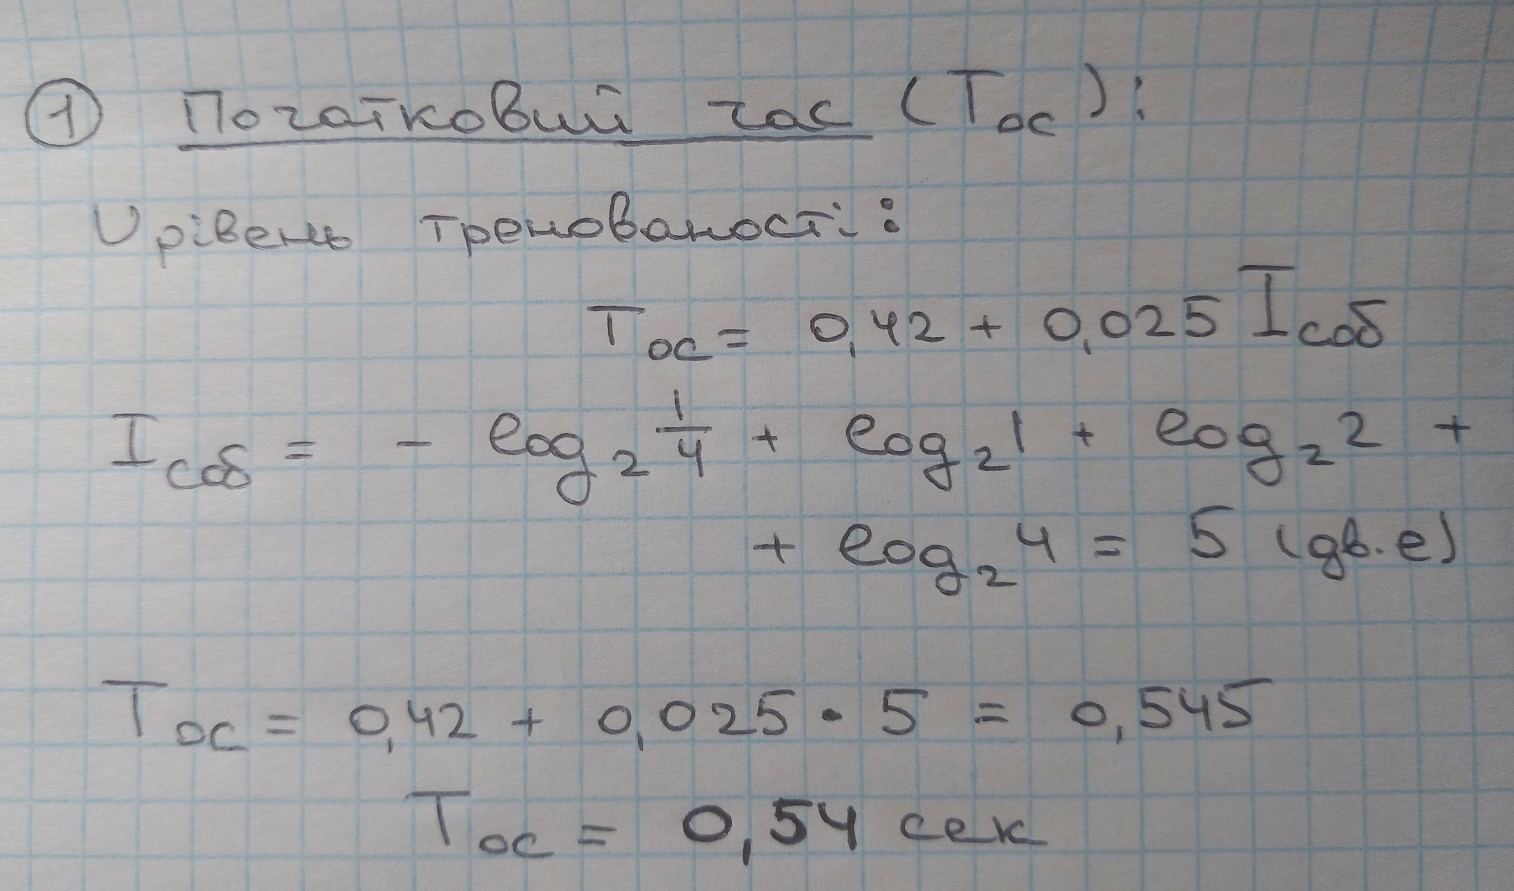 ① Початковий час (Tос):
Урівень тренованості:
Tос = 0,42 + 0,025 Iсоб
Iсоб = - log₂ 1/4 + log₂ 1 + log₂ 2 +
+ log₂ 4 = 5 (дв.е)
Tос = 0,42 + 0,025 • 5 = 0,545
Tос = 0,54 сек